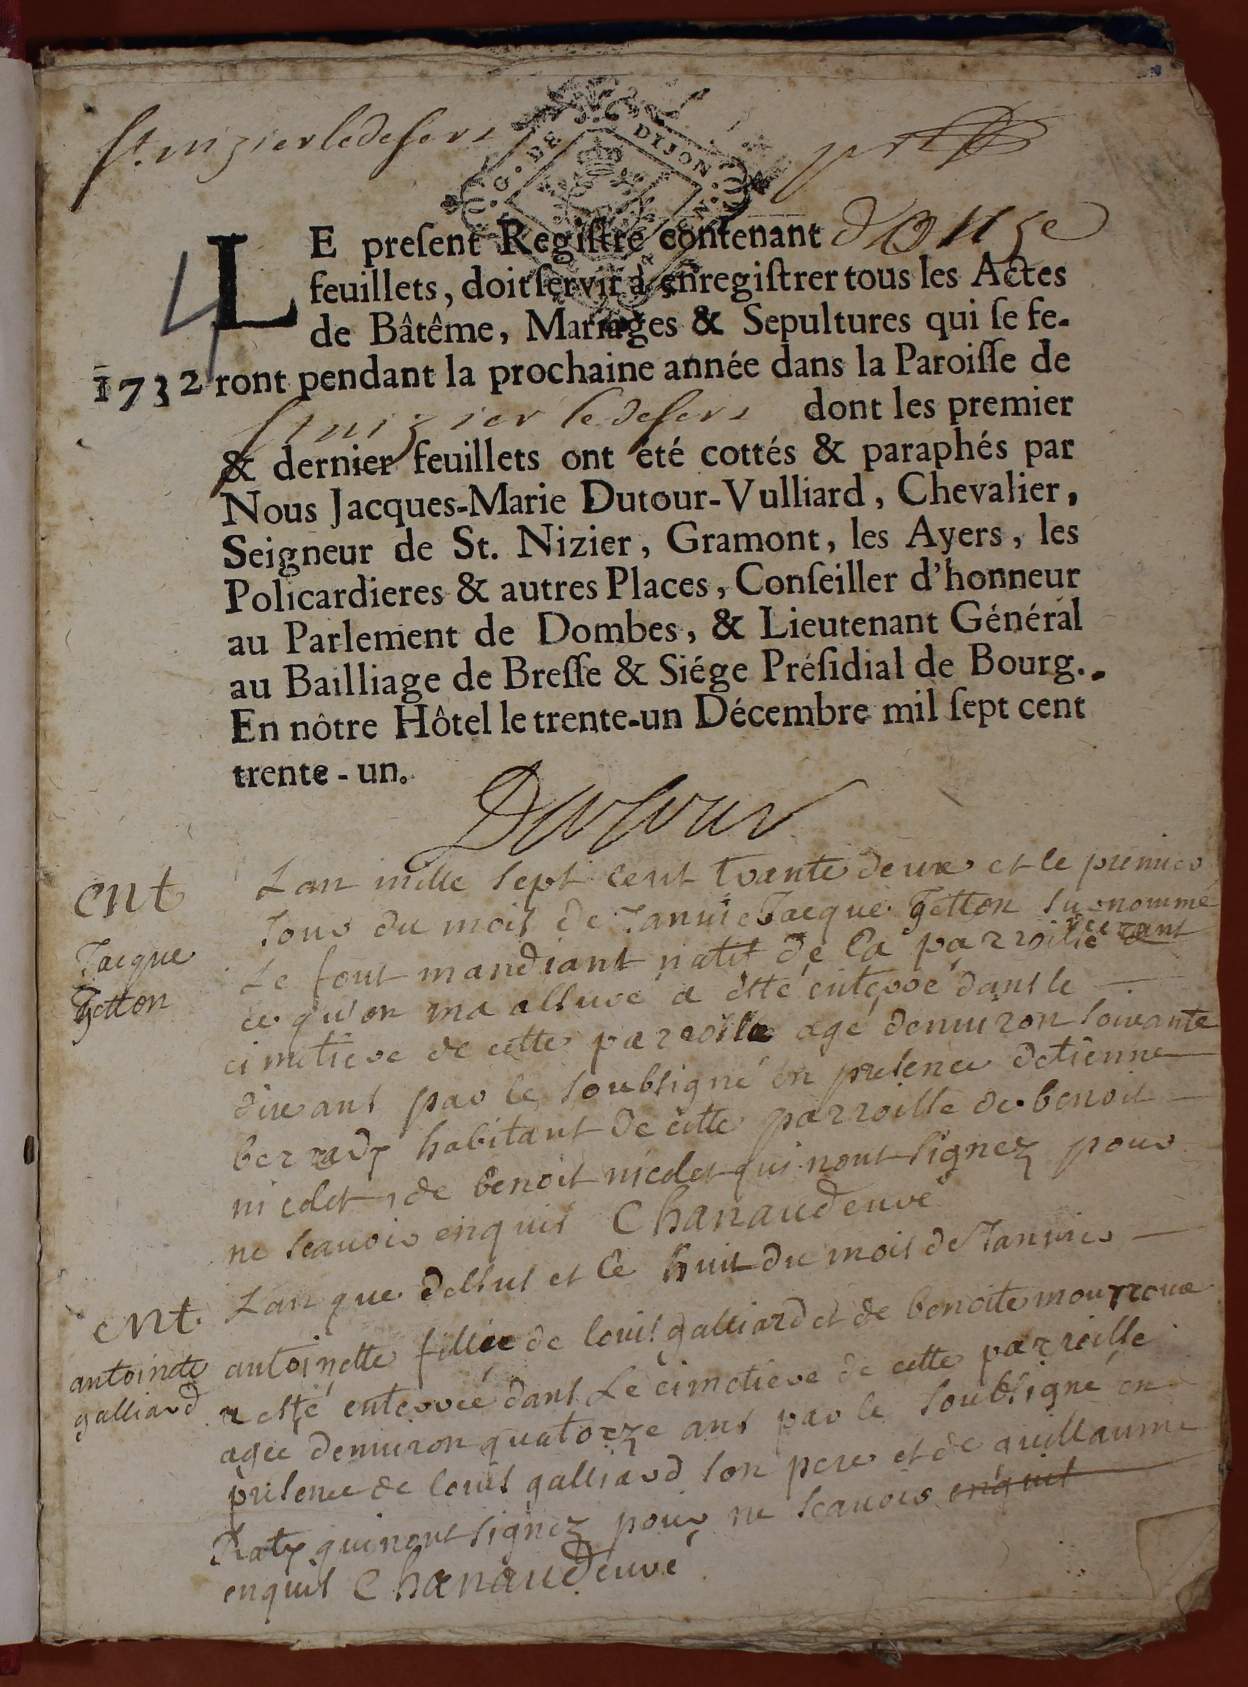 St nizier le desert
G. DE DIJON
LE preſent Regiſtre contenant douze
feuillets, doit ſervir à enregiſtrer tous les Actes
de Bâtême, Mariages & Sepultures qui ſe fe-
1732 ront pendant la prochaine année dans la Paroiſſe de
St nizier le desert dont les premier
& dernier feuillets ont été cottés & paraphés par
Nous Jacques-Marie Dutour-Vulliard, Chevalier,
Seigneur de St. Nizier, Gramont, les Ayers, les
Policardieres & autres Places, Conſeiller d'honneur
au Parlement de Dombes, & Lieutenant Général
au Bailliage de Breſſe & Siége Préſidial de Bourg.
En nôtre Hôtel le trente-un Décembre mil ſept cent
trente-un.
Dutour
Ent
Jacque
Lan mille sept cent trante deux et le premier
Jour du mois de Janvie Jacque surnommé
Le fort mandiant natif de la parroisse
ce qu'on ma assuré a êtté enterré dans le
cimetiere de cette parroisse agé denviron soixante
dix ans par le soubsigné en presence detienne
habitant de cette parroisse de benoit
nicolet de benoit nicolet qui nont signez pour
ne scavoir enquis Chanaudeuvé
Ent.
antoinete
galliard
Lan que dessus et le huit du mois de Janvier
antoinette fillie de louis galliard et de benoite
a esté enterrée dans Le cimetiere de cette parroisse
agée denviron quatorze ans par le soubsigné en
presence de louis galliard son pere et de guillaume
qui nont signez pour ne scavoir enquis
enquis Chanaudeuvé